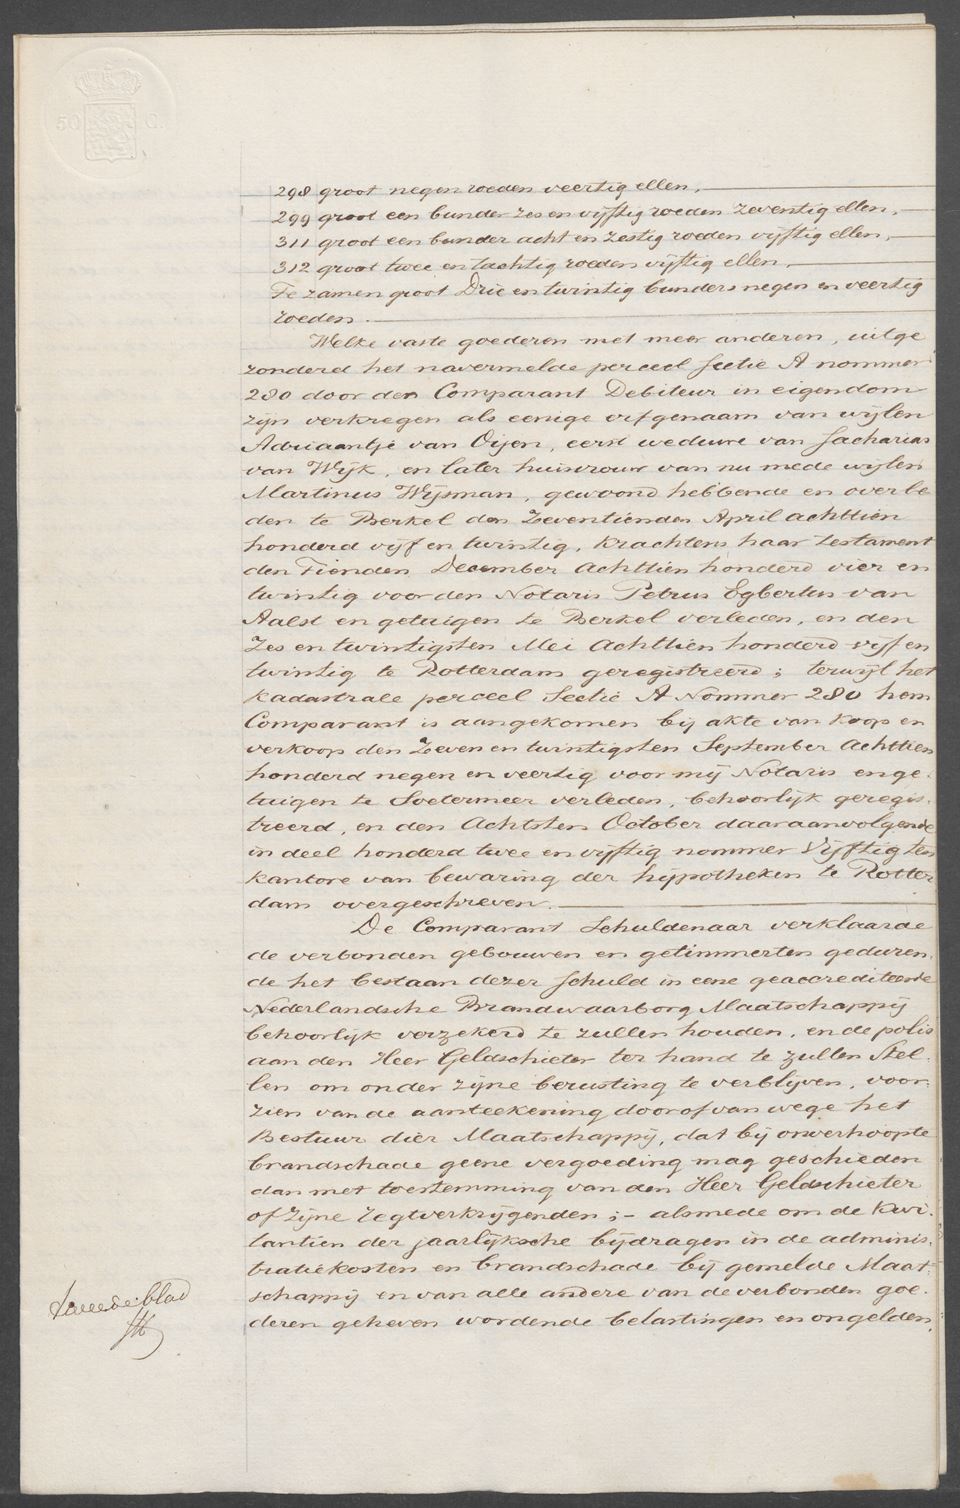 50 C.
298 groot negen roeden veertig ellen,
299 groot een bunder zes en vyftig roeden zeventig ellen,
311 groot een bunder acht en zestig roeden vyftig ellen,
312 groot twee en tachtig roeden vyftig ellen,
Te zamen groot Drie en twintig bunders negen en veertig
roeden.
Welke vaste goederen met meer anderen, uitge
zonderd het navermelde perceel Sectie A nommer
280 door den Comparant Debiteur in eigendom
zyn verkregen als eenige erfgenaam van wylen
Adriaantje van Oijen, eerst weduwe van Zacharias
van Wijk, en later huisvrouw van nu mede wylen
Martinus Wijsman, gewoond hebbende en overle
den te Berkel den Zeventienden April achttien
honderd vyf en twintig, krachtens haar testament
den Tienden December Achttien honderd vier en
twintig voor den Notaris Petrus Egbertus van
Aalst en getuigen te Berkel verleden, en den
Zes en twintigsten Mei Achttien honderd vyf en
twintig te Rotterdam geregistreerd; terwyl het
Kadastrale perceel Sectie A Nommer 280 hem
Comparant is aangekomen bij akte van koop en
verkoop den Zeven en twintigsten September Achttien
honderd negen en veertig voor mij Notaris en ge-
tuigen te Soetermeer verleden, behoorlijk geregis-
treerd, en den Achtsten October daaraanvolgende
in deel honderd twee en vyftig nommer Vyftig ten
kantore van bewaring der hypotheken te Rotter
dam overgeschreven.
De Comparant Schuldenaar verklaarde
de verbonden gebouwen en getimmerten geduren-
de het bestaan dezer schuld in eene geaccrediteerde
Nederlandsche Brandwaarborg Maatschappij
behoorlyk verzekerd te zullen houden, en de polis
aan den Heer Geldschieter ter hand te zullen stel-
len om onder zijne berusting te verblijven, voor-
zien van de aanteekening door of van wege het
Bestuur dier Maatschappij, dat bij onverhoopte
brandschade geene vergoeding mag geschieden
dan met toestemming van den Heer Geldschieter
of zijne regtverkrijgenden;- alsmede om de kwi-
tantien der jaarlijksche bijdragen in de adminis-
tratiekosten en brandschade bij gemelde Maat-
schappij en van alle andere van de verbonden goe-
deren geheven wordende belastingen en ongelden,
tweede blad